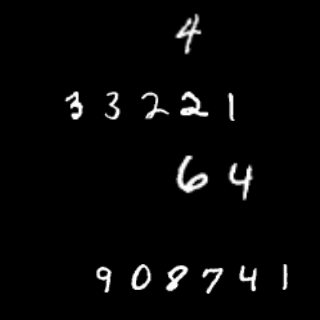 4
3 3 2 2 1
6 4
9 0 8 7 4 1